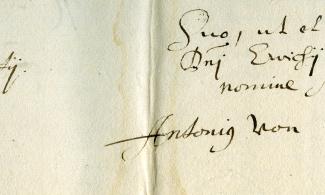 ij.
Suo, ut et
Dnj Ervichij
nomine
Antonius von